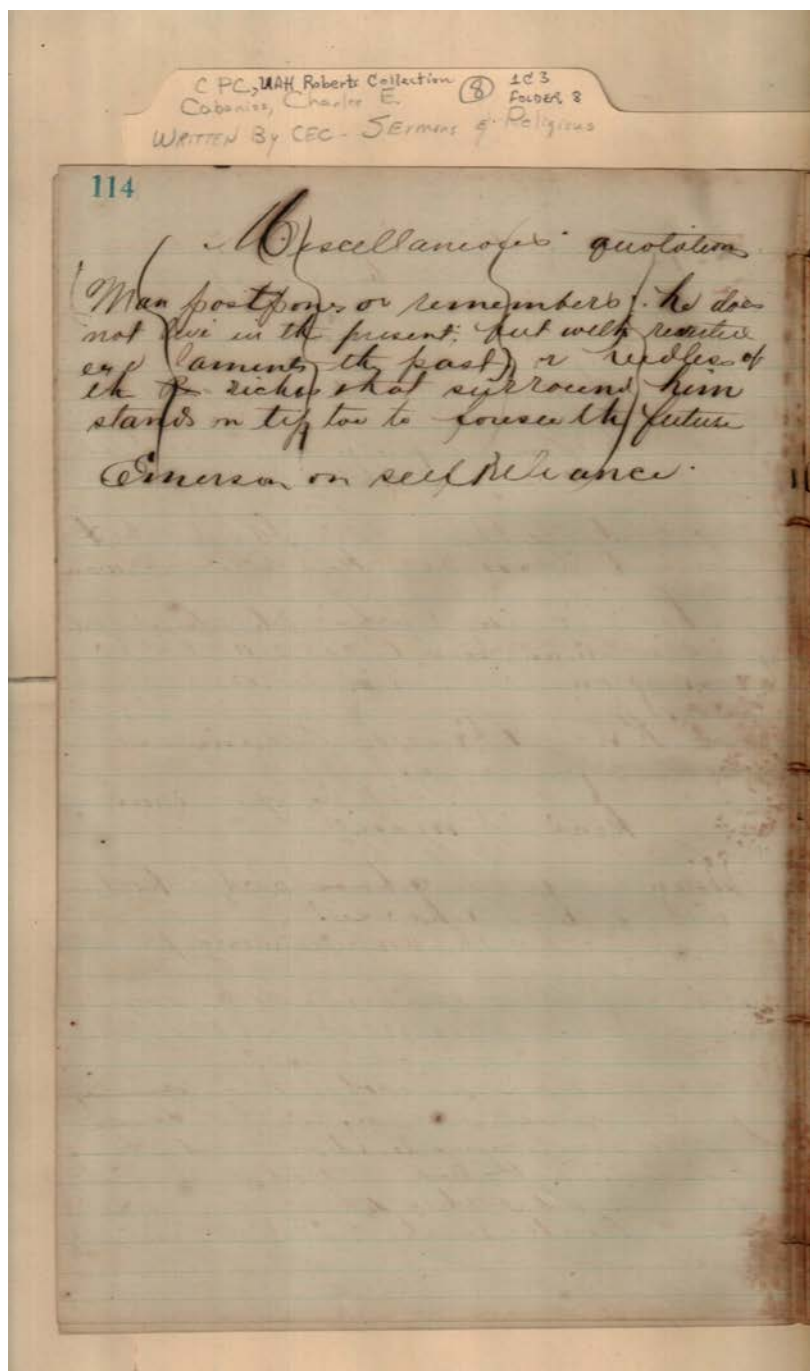 C PC, UAH Roberts Collection (8) 1C3
Cabaniss, Charles E. FOLDER 8
WRITTEN By CEC - SErmons & Religious
114
Miscellaneous quotations
Man postpones or remembers; he does
not live in the present; but with
eye laments the past, or heedless of
the riches that surround him
stands on tip toe to foresee the future
Emerson on self Reliance.